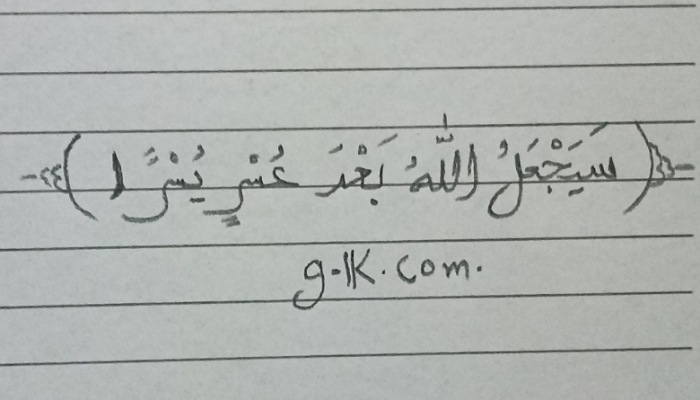 ﴿سَيَجْعَلُ اللّٰهُ بَعْدَ عُسْرٍ يُسْرًا﴾
g-1K.com.